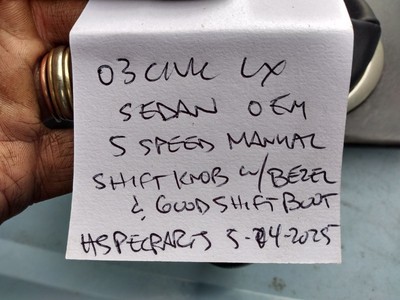 03 CIVIC LX
SEDAN OEM
5 SPEED MANUAL
SHIFT KNOB w/BEZEL
& GOOD SHIFT BOOT
HSPECPARTS 5-24-2025